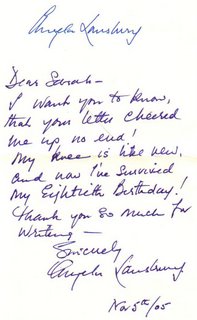 Angela Lansbury
Dear Sarah–
I want you to know,
that your letter cheered
me up no end!
My knee is like new,
and now I've survived
My Eightieth Birthday!
Thank you so much for
writing –
Sincerely
Angela Lansbury
Nov 5th/05